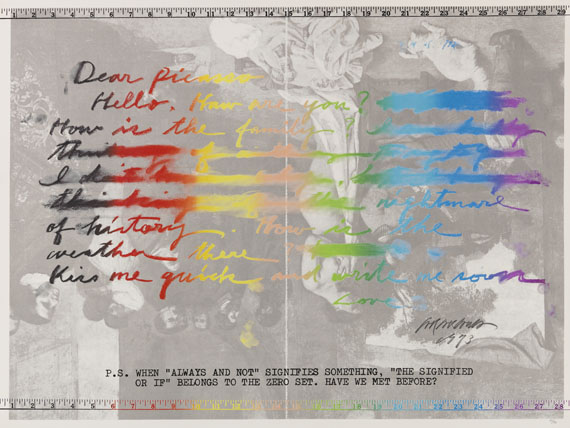 1 2 3 4 5 6 7 8 9 10 11 12 13 14 15 16 17 18 19 20 21 22 23 24 25 26 27 28 29
Dear picasso
Hello. How are you?
How is the family?
of the
I
thinking the nightmare
of history. How is the
weather there?
Kiss me quick and write me soon
Love
1973
P.S. WHEN "ALWAYS AND NOT" SIGNIFIES SOMETHING, "THE SIGNIFIED
OR IF" BELONGS TO THE ZERO SET. HAVE WE MET BEFORE?
1 2 3 4 5 6 7 8 9 10 11 12 13 14 15 16 17 18 19 20 21 22 23 24 25 26 27 28